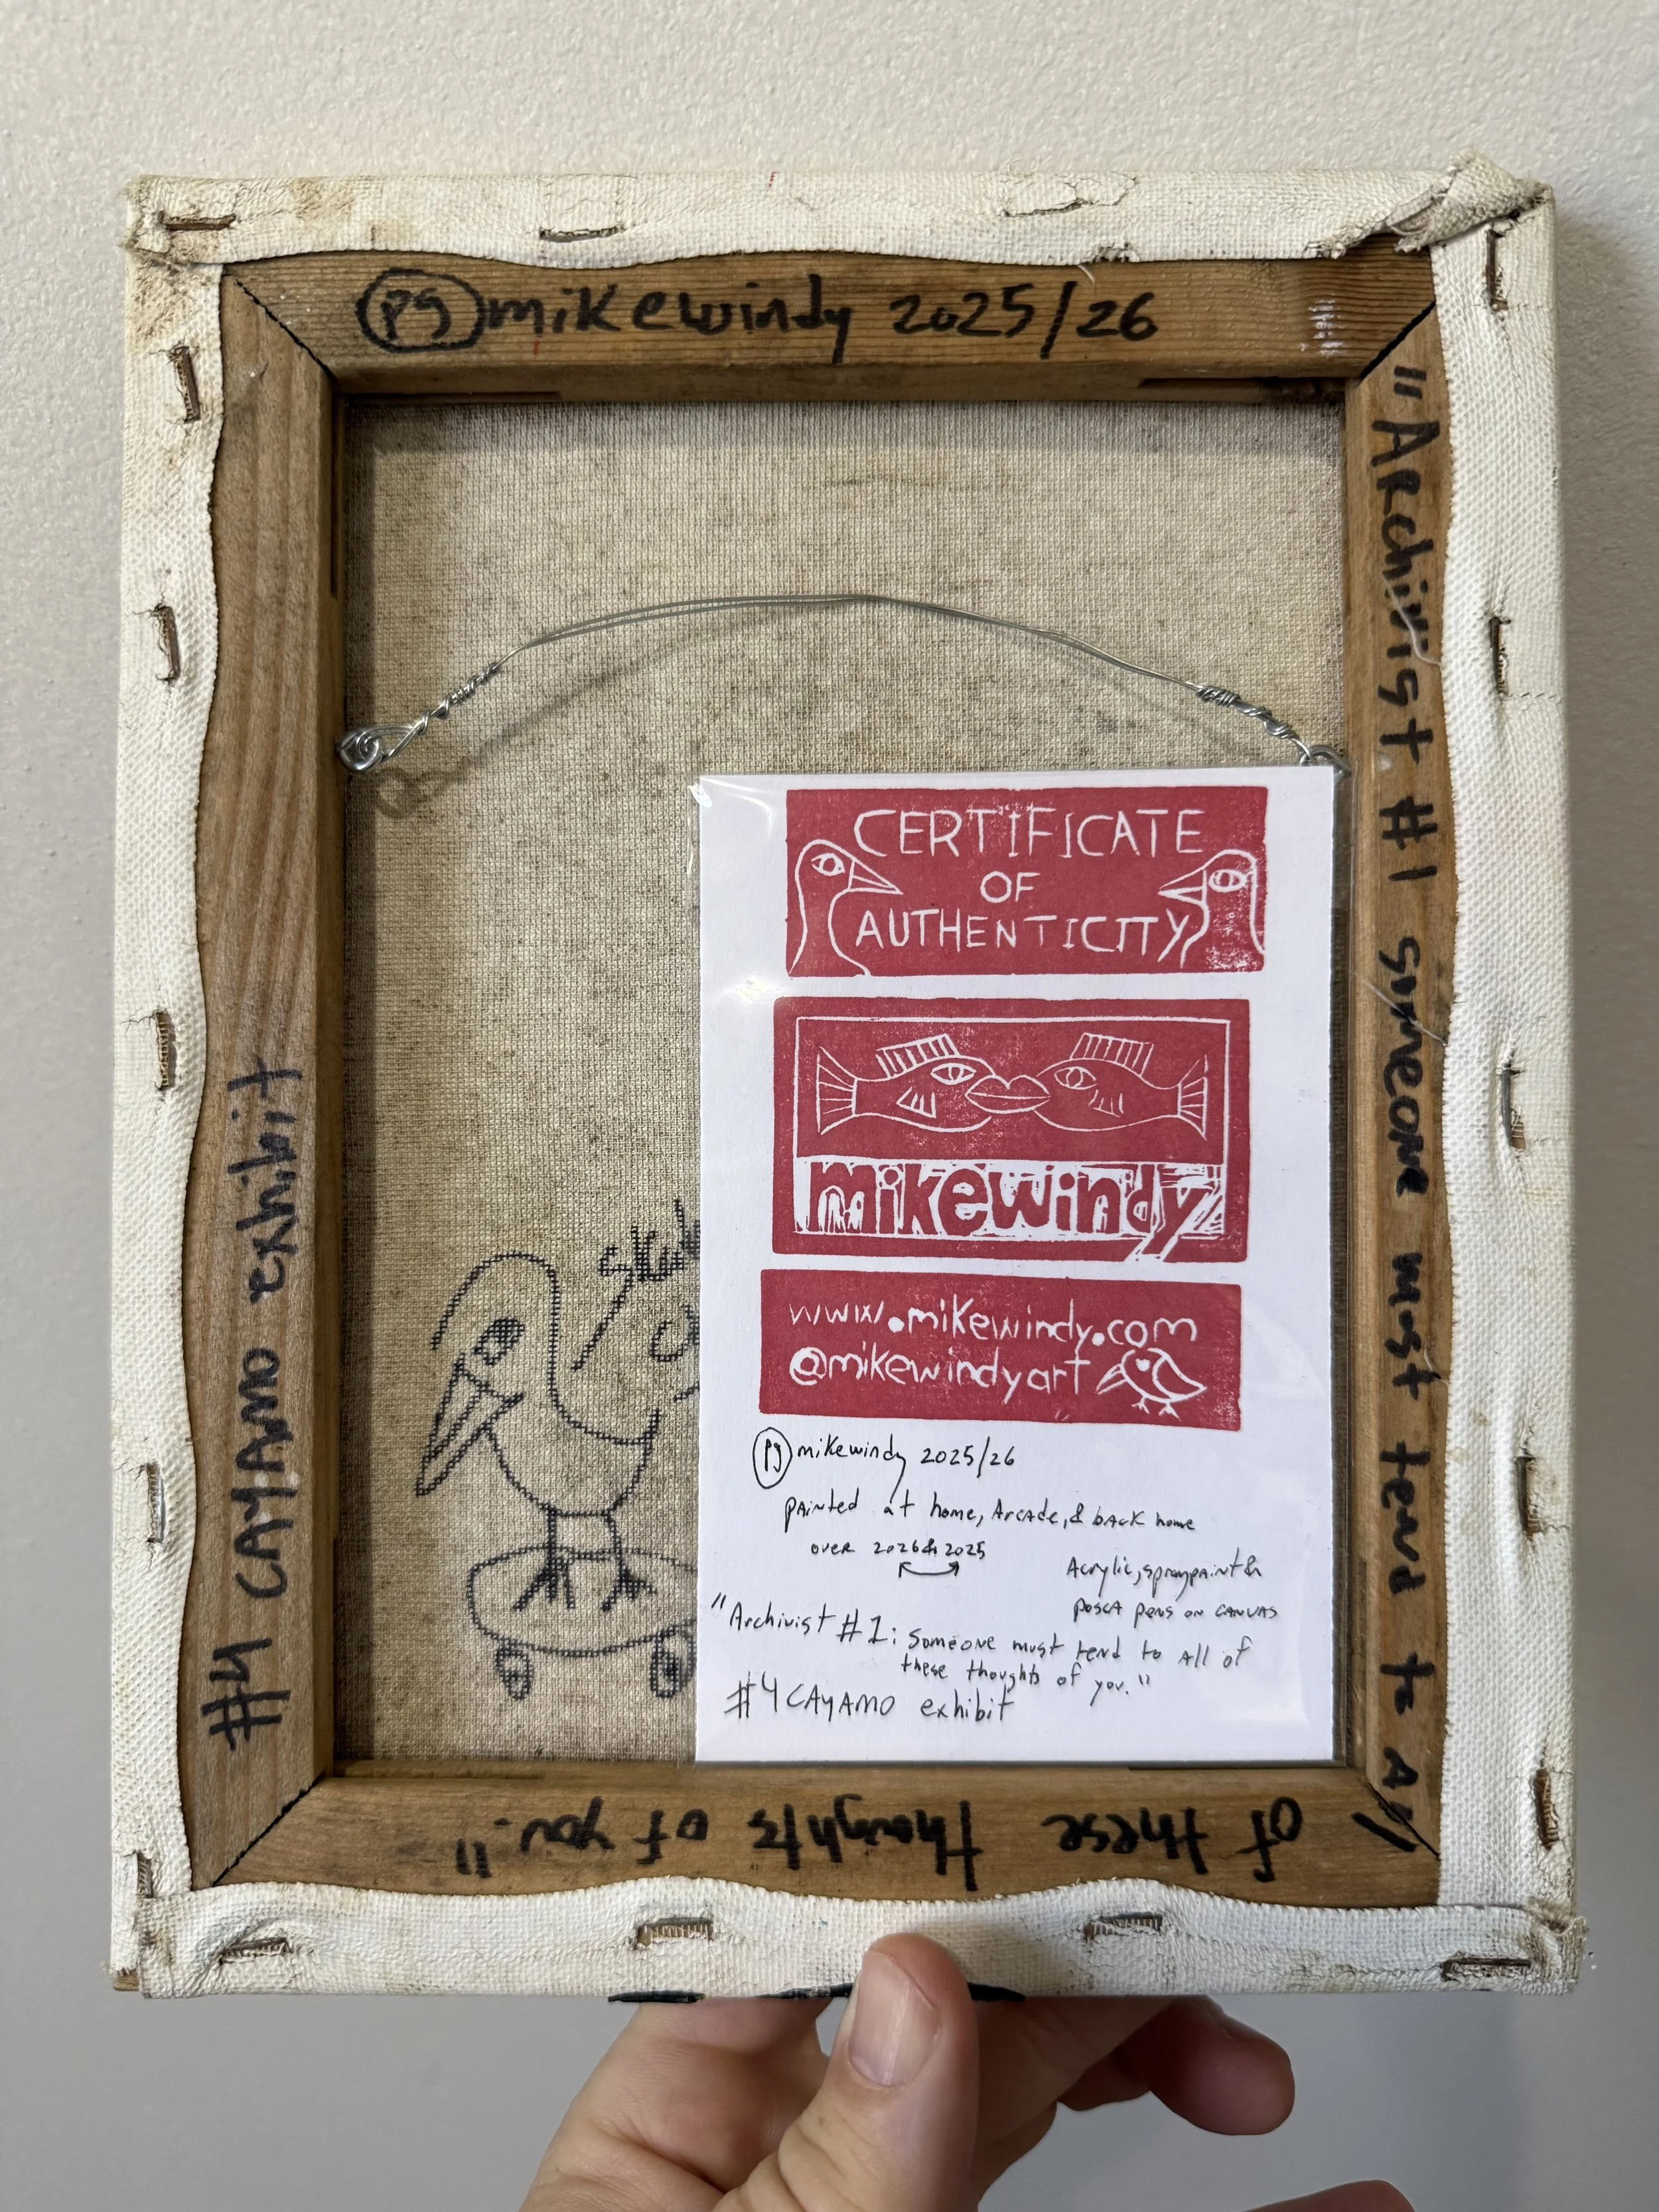 PS mikewindy 2025/26
"Archivist #1 someone must tend to All
of these thoughts of you."
#4 CAYAMO exhibit
CERTIFICATE
OF
AUTHENTICITY
mikewindy
www.mikewindy.com
@mikewindyart
PS mikewindy 2025/26
painted at home, Arcade, & back home
over 2026 & 2025
Acrylic, spraypaint &
posca pens on canvas
"Archivist #1: someone must tend to All of
these thoughts of you."
#4 CAYAMO exhibit